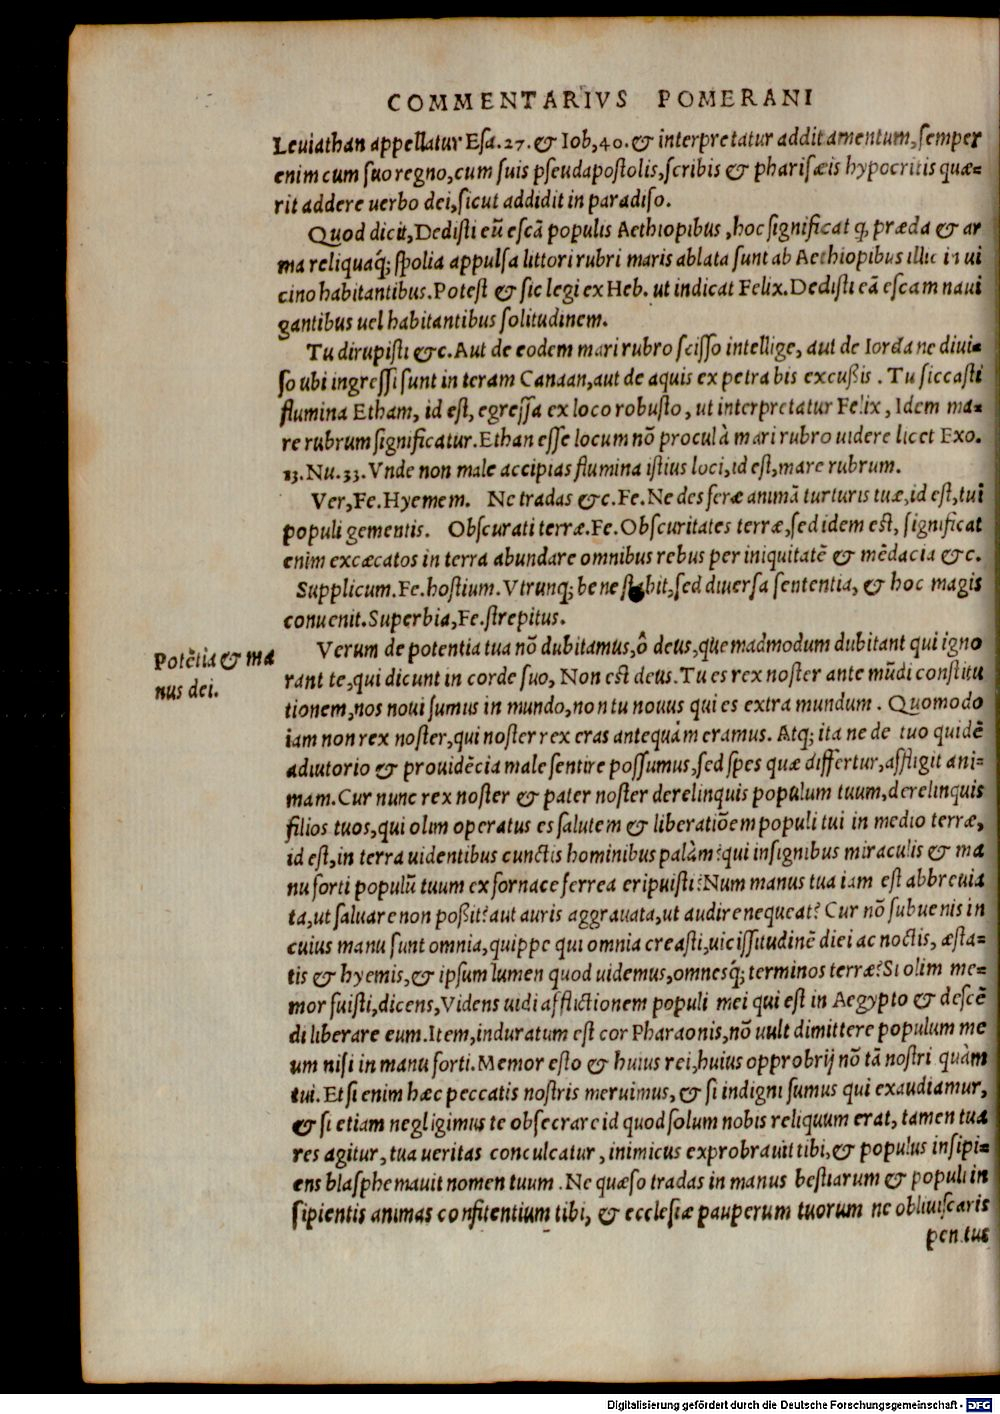 COMMENTARIVS POMERANI
Leuiathan appellatur Esa.27.& Iob,40.& interpretatur additamentum,semper
enim cum suo regno,cum suis pseudapostolis,scribis & pharisæis hypocritis quæ=
rit addere uerbo dei,sicut addidit in paradiso.
Quod dicit,Dedisti eū escā populis Aethiopibus,hoc significat q, præda & ar
ma reliquaq́; spolia appulsa littori rubri maris ablata sunt ab Aethiopibus illic in ui
cino habitantibus.Potest & sic legi ex Heb. ut indicat Felix.Dedisti eā escam naui
gantibus uel habitantibus solitudinem.
Tu dirupisti &c.Aut de eodem mari rubro scisso intellige, aut de Iordane diui=
so ubi ingressi sunt in teram Canaan,aut de aquis ex petra bis excußis. Tu siccasti
flumina Etham, id est, egressa ex loco robusto, ut interpretatur Felix, Idem ma=
re rubrum significatur.Ethan esse locum nō procul à mari rubro uidere licet Exo.
13.Nu.33.Vnde non male accipias flumina istius loci,id est,mare rubrum.
Ver,Fe.Hyemem. Ne tradas &c.Fe.Ne des feræ animā turturis tuæ,id est,tui
populi gementis. Obscurati terræ.Fe.Obscuritates terræ,sed idem est, significat
enim excæcatos in terra abundare omnibus rebus per iniquitatē & mēdacia &c.
Supplicum.Fe.hostium.Vtrunq; bene stabit,sed diuersa sententia, & hoc magis
conuenit.Superbia,Fe.strepitus.
Potētia & ma
nus dei.
Verum de potentia tua nō dubitamus,ô deus,quemadmodum dubitant qui igno
rant te,qui dicunt in corde suo, Non est deus.Tu es rex noster ante mūdi constitu
tionem,nos noui sumus in mundo,non tu nouus qui es extra mundum. Quomodo
iam non rex noster,qui noster rex eras antequàm eramus. Atq; ita ne de tuo quidē
adiutorio & prouidēcia male sentire possumus,sed spes quæ differtur,affligit ani=
mam.Cur nunc rex noster & pater noster derelinquis populum tuum,derelinquis
filios tuos,qui olim operatus es salutem & liberatiōem populi tui in medio terræ,
id est,in terra uidentibus cunctis hominibus palàm?qui insignibus miraculis & ma
nu forti populū tuum ex fornace ferrea eripuisti?Num manus tua iam est abbreuia
ta,ut saluare non poßit?aut auris aggrauata,ut audire nequeat? Cur nō subuenis in
cuius manu sunt omnia,quippe qui omnia creasti,uicissitudinē diei ac noctis, æsta=
tis & hyemis,& ipsum lumen quod uidemus,omnesq́; terminos terræ?Si olim me=
mor fuisti,dicens,Videns uidi afflictionem populi mei qui est in Aegypto & descē
di liberare eum.Item,induratum est cor Pharaonis,nō uult dimittere populum me
um nisi in manu forti.Memor esto & huius rei,huius opprobrij nō tā nostri quàm
tui.Etsi enim hæc peccatis nostris meruimus, & si indigni sumus qui exaudiamur,
& si etiam negligimus te obsecrare id quod solum nobis reliquum erat, tamen tua
res agitur, tua ueritas conculcatur, inimicus exprobrauit tibi,& populus insipi=
ens blasphemauit nomen tuum. Ne quæso tradas in manus bestiarum & populi in
sipientis animas confitentium tibi, & ecclesiæ pauperum tuorum ne obliuiscaris
penitus
Digitalisierung gefördert durch die Deutsche Forschungsgemeinschaft - DFG